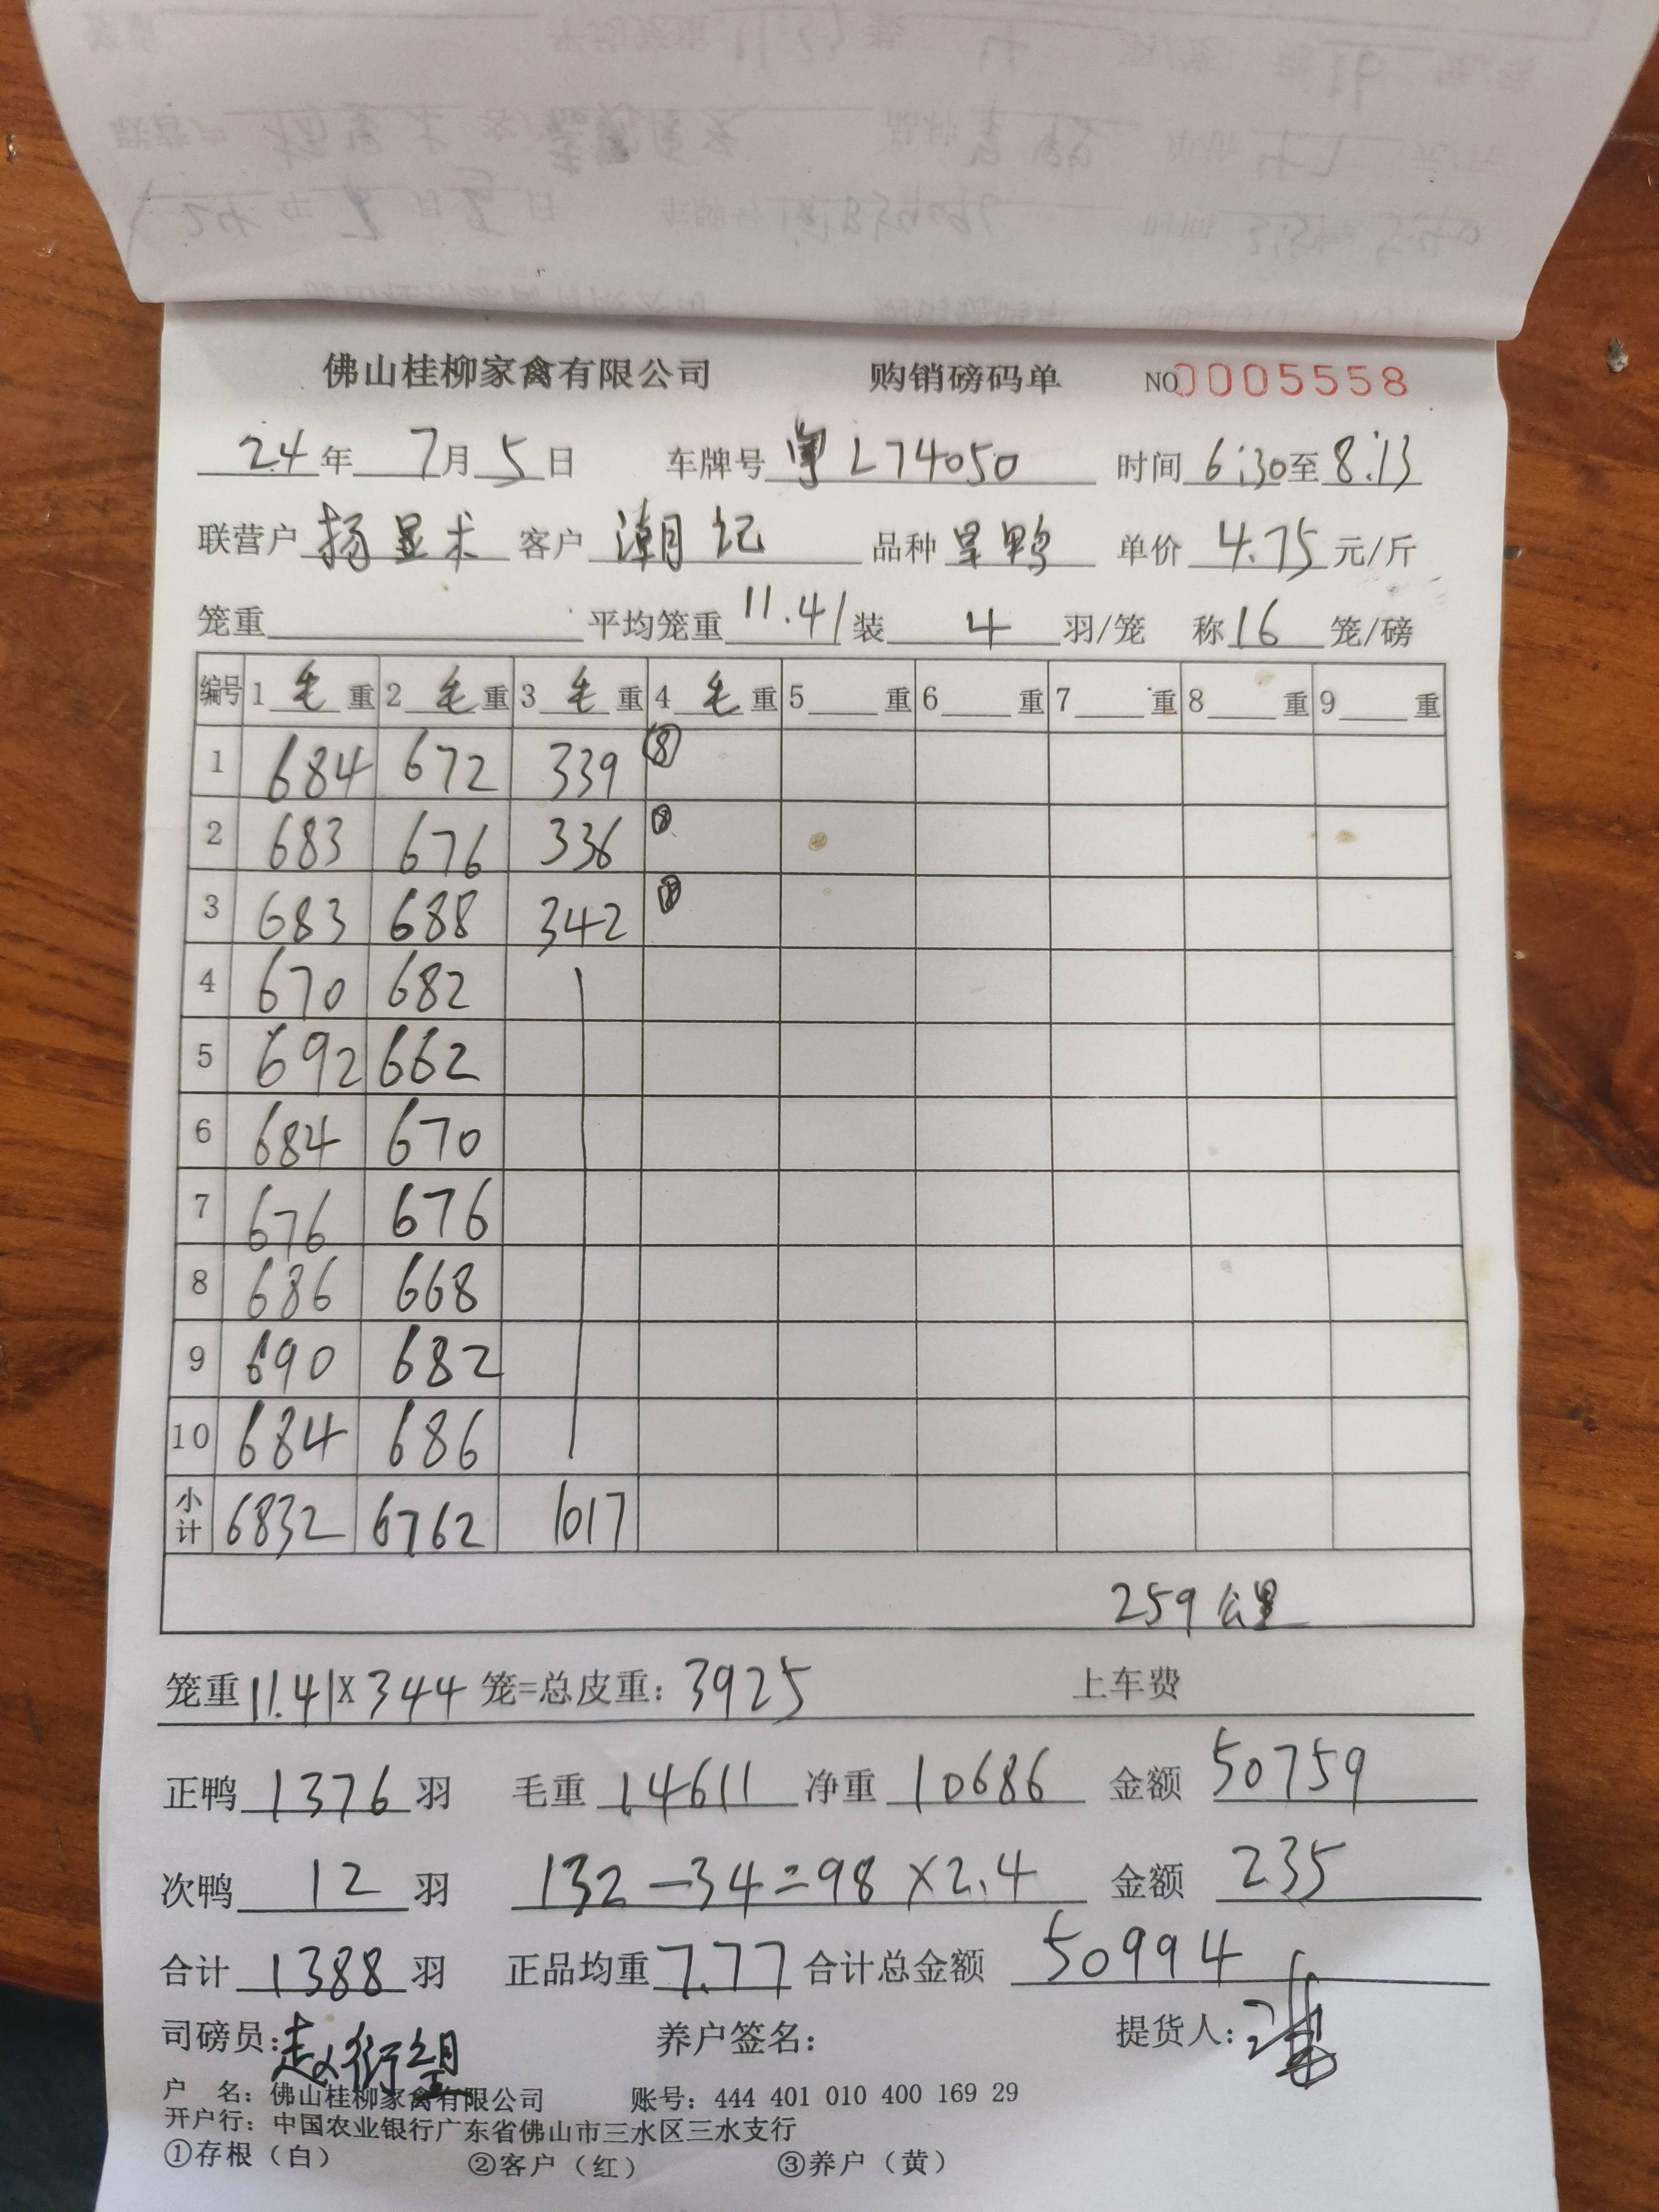 佛山桂柳家禽有限公司 购销磅码单 NO 0005558
24年 7月 5日 车牌号 粤L74050 时间 6:30至8:13
联营户 杨显术 客户 潮记 品种 旱鸭 单价 4.75 元/斤
笼重 平均笼重 11.41 装 4 羽/笼 称 16 笼/磅
编号 1 毛 重 2 毛 重 3 毛 重 4 毛 重 5 重 6 重 7 重 8 重 9 重
1 684 672 339 ⑧
2 683 676 336 ⑧
3 683 688 342 ⑧
4 670 682
5 692 662
6 684 670
7 676 676
8 686 668
9 690 682
10 684 686
小计 6832 6762 1017
259 公里
笼重 11.41X344 笼=总皮重: 3925 上车费
正鸭 1376 羽 毛重 14611 净重 10686 金额 50759
次鸭 12 羽 132-34=98×2.4 金额 235
合计 1388 羽 正品均重 7.77 合计总金额 50994
司磅员: 养户签名: 提货人:
户 名: 佛山桂柳家禽有限公司 账号: 444 401 010 400 169 29
开户行: 中国农业银行广东省佛山市三水区三水支行
①存根（白） ②客户（红） ③养户（黄）